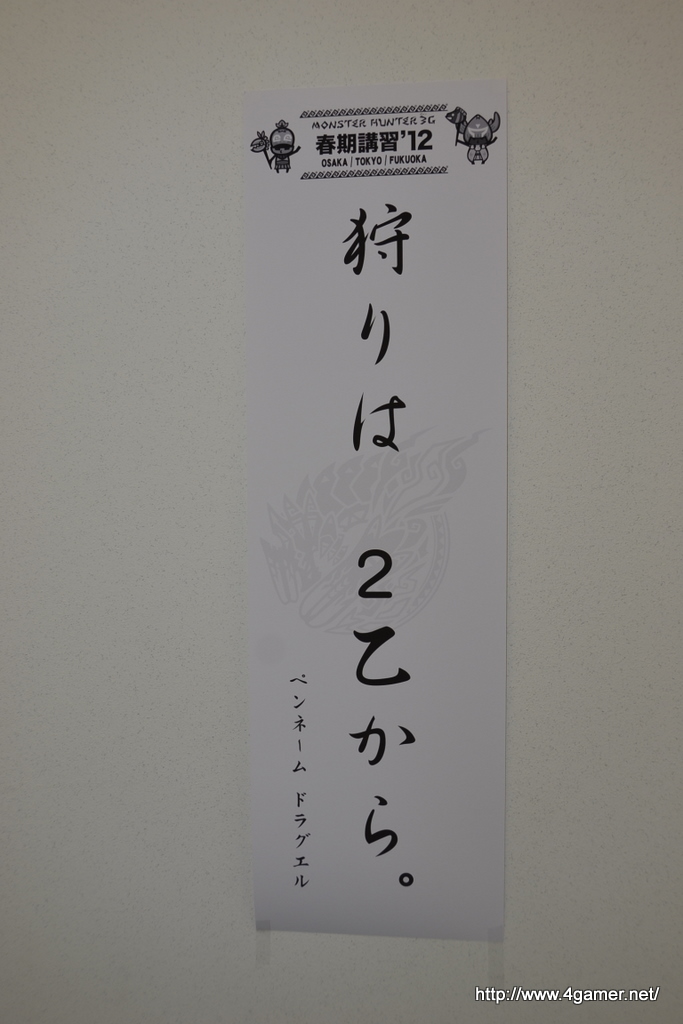 MONSTER HUNTER 3G
春期講習'12
OSAKA / TOKYO / FUKUOKA
狩りは 2乙から。
ペンネーム ドラグエル
http://www.4gamer.net/